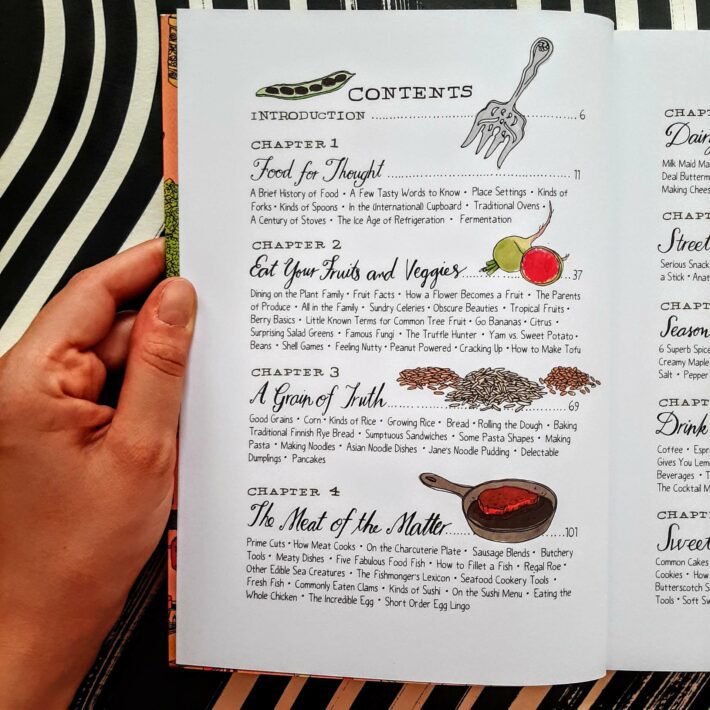 CONTENTS
INTRODUCTION ........................................ 6
CHAPTER 1
Food for Thought ........................................ 11
A Brief History of Food • A Few Tasty Words to Know • Place Settings • Kinds of
Forks • Kinds of Spoons • In the (International) Cupboard • Traditional Ovens •
A Century of Stoves • The Ice Age of Refrigeration • Fermentation
CHAPTER 2
Eat Your Fruits and Veggies .................... 37
Dining on the Plant Family • Fruit Facts • How a Flower Becomes a Fruit • The Parents
of Produce • All in the Family • Sundry Celeries • Obscure Beauties • Tropical Fruits •
Berry Basics • Little Known Terms for Common Tree Fruit • Go Bananas • Citrus •
Surprising Salad Greens • Famous Fungi • The Truffle Hunter • Yam vs. Sweet Potato •
Beans • Shell Games • Feeling Nutty • Peanut Powered • Cracking Up • How to Make Tofu
CHAPTER 3
A Grain of Truth ........................................ 69
Good Grains • Corn • Kinds of Rice • Growing Rice • Bread • Rolling the Dough • Baking
Traditional Finnish Rye Bread • Sumptuous Sandwiches • Some Pasta Shapes • Making
Pasta • Making Noodles • Asian Noodle Dishes • Jane's Noodle Pudding • Delectable
Dumplings • Pancakes
CHAPTER 4
The Meat of the Matter ........................ 101
Prime Cuts • How Meat Cooks • On the Charcuterie Plate • Sausage Blends • Butchery
Tools • Meaty Dishes • Five Fabulous Food Fish • How to Fillet a Fish • Regal Roe •
Other Edible Sea Creatures • The Fishmonger's Lexicon • Seafood Cookery Tools •
Fresh Fish • Commonly Eaten Clams • Kinds of Sushi • On the Sushi Menu • Eating the
Whole Chicken • The Incredible Egg • Short Order Egg Lingo
CHAPT
Dair
Milk Maid Ma
Deal Butterm
Making Chees
CHAPT
Street
Serious Snack
a Stick • Anat
CHAPT
Season
6 Superb Spice
Creamy Maple
Salt • Pepper
CHAPT
Drink
Coffee • Espr
Gives You Lem
Beverages • T
The Cocktail M
CHAPT
Sweet
Common Cakes
Cookies • How
Butterscotch S
Tools • Soft Sw